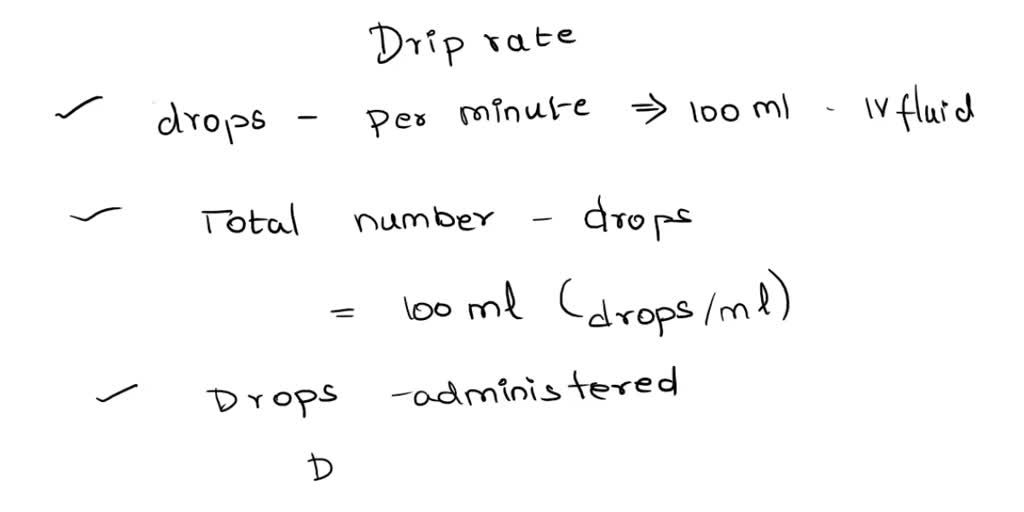 Drip rate
drops - per minute ⇒ 100 ml - IV fluid
Total number - drops
= 100 ml (drops/ml)
Drops - administered
D